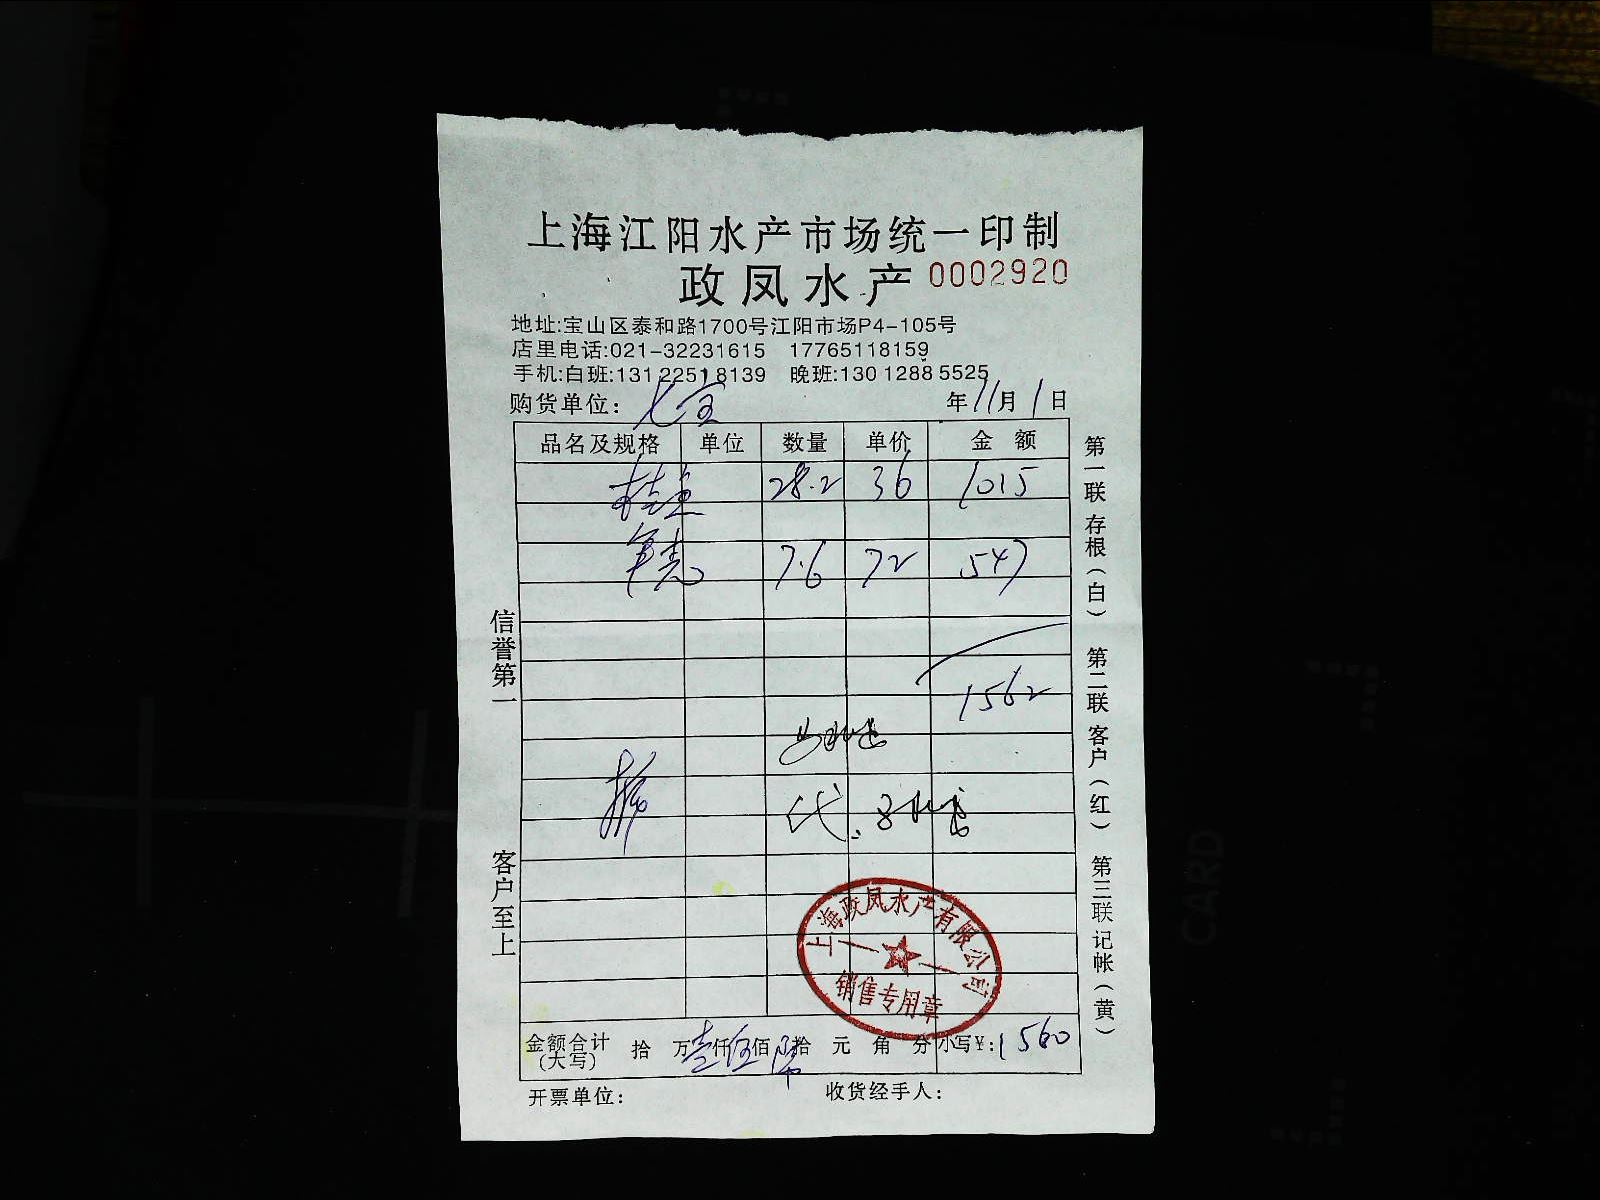 上海江阳水产市场统一印制
政凤水产 0002920
地址:宝山区泰和路1700号江阳市场P4-105号
店里电话:021-32231615 17765118159
手机:白班:131 2251 8139 晚班:130 1288 5525
购货单位: 七宝 年 11 月 1 日
品名及规格 单位 数量 单价 金额
桂鱼 28.2 36 1015
7.6 72 547
1562
代
金额合计(大写) 拾 万 壹 仟 伍 佰 陆 拾 元 角 分 小写¥: 1560
开票单位: 收货经手人:
信誉第一
客户至上
第一联 存根(白) 第二联 客户(红) 第三联 记帐(黄)
上海政凤水产有限公司
销售专用章
CARD